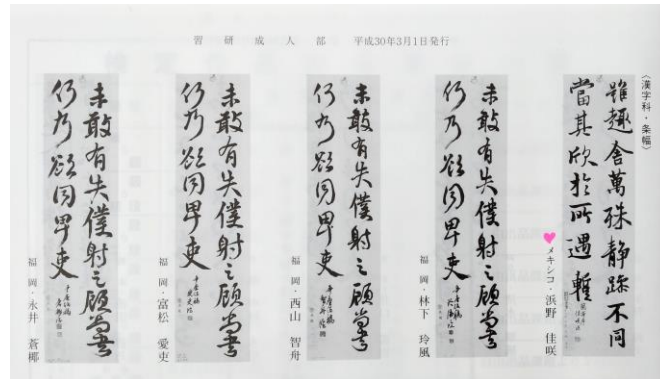 習研成人部 平成30年3月1日発行
〈漢字科・条幅〉
雖趣舎萬殊静躁不同
當其欣於所遇蹔
メキシコ・浜野 佳咲
未敢有失僕射之顧尚書
何乃欲同卑吏
福岡・林下 玲風
未敢有失僕射之顧尚書
何乃欲同卑吏
福岡・西山 智舟
未敢有失僕射之顧尚書
何乃欲同卑吏
福岡・富松 愛吏
未敢有失僕射之顧尚書
何乃欲同卑吏
福岡・永井 蒼椰